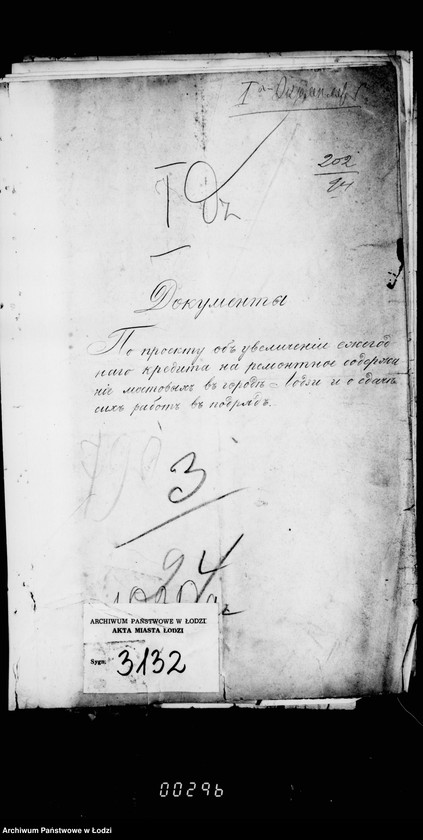 Iй Экземпляръ
202
94
I Дг
Документы
По проекту объ увеличенiе ежегод
наго кредита на ремонтное содержа
нiе мостовыхъ въ городѣ Лодзи и о сдачѣ
сихъ работъ въ подрядъ.
3
94
ARCHIWUM PAŃSTWOWE W ŁODZI
AKTA MIASTA ŁODZI
Sygn. 3132
00296
Archiwum Państwowe w Łodzi